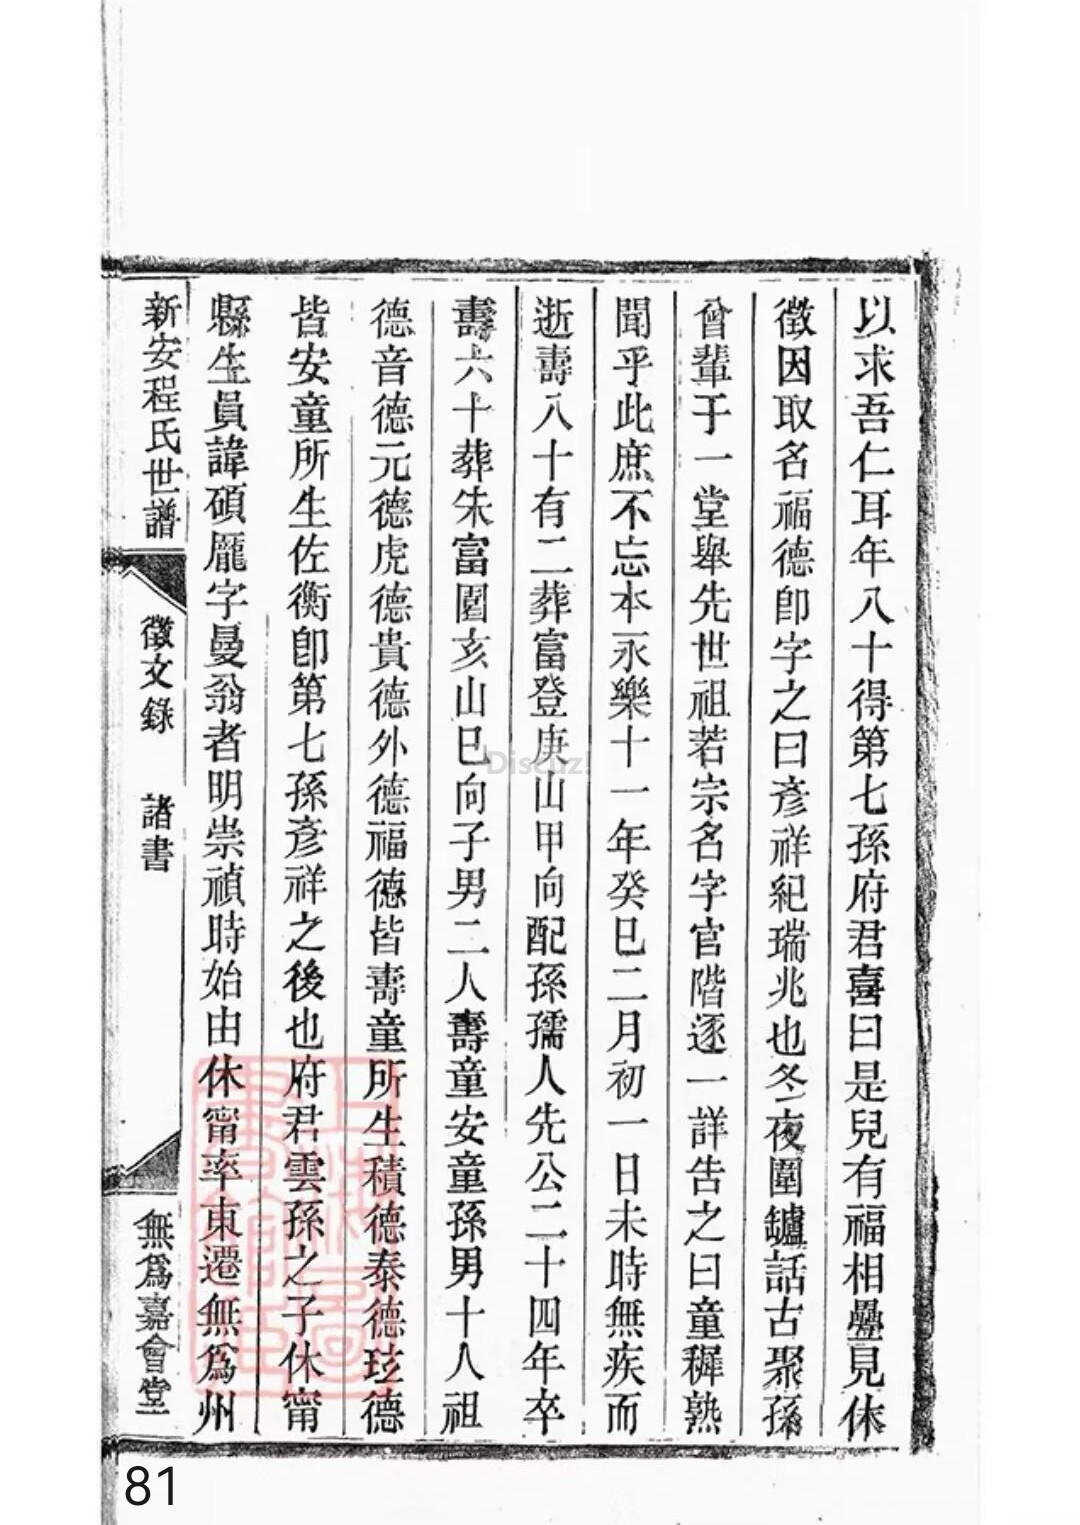 以求吾仁耳年八十得第七孫府君喜曰是兒有福相疊見休
徵因取名福德卽字之曰彥祥紀瑞兆也冬夜圍鑪話古聚孫
曾輩于一堂舉先世祖若宗名字官階逐一詳告之曰童穉熟
聞乎此庶不忘本永樂十一年癸巳二月初一日未時無疾而
逝壽八十有二葬富登庚山甲向配孫孺人先公二十四年卒
壽六十葬朱富園亥山巳向子男二人壽童安童孫男十人祖
德音德元德虎德貴德外德福德皆壽童所生積德泰德珍德
皆安童所生佐衡卽第七孫彥祥之後也府君雲孫之子休甯
縣生員諱碩龎字曼翁者明崇禎時始由休甯率東遷無爲州
新安程氏世譜 徵文錄 諸書 無爲嘉會堂
Discuz!
81